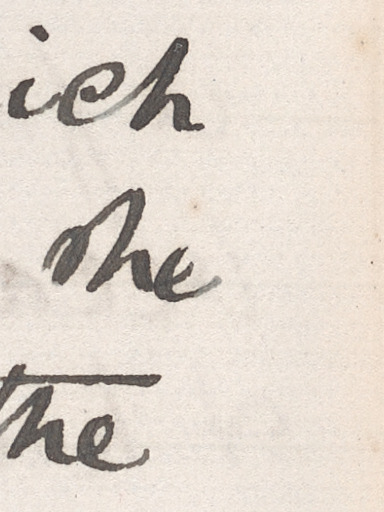 ich
she
the